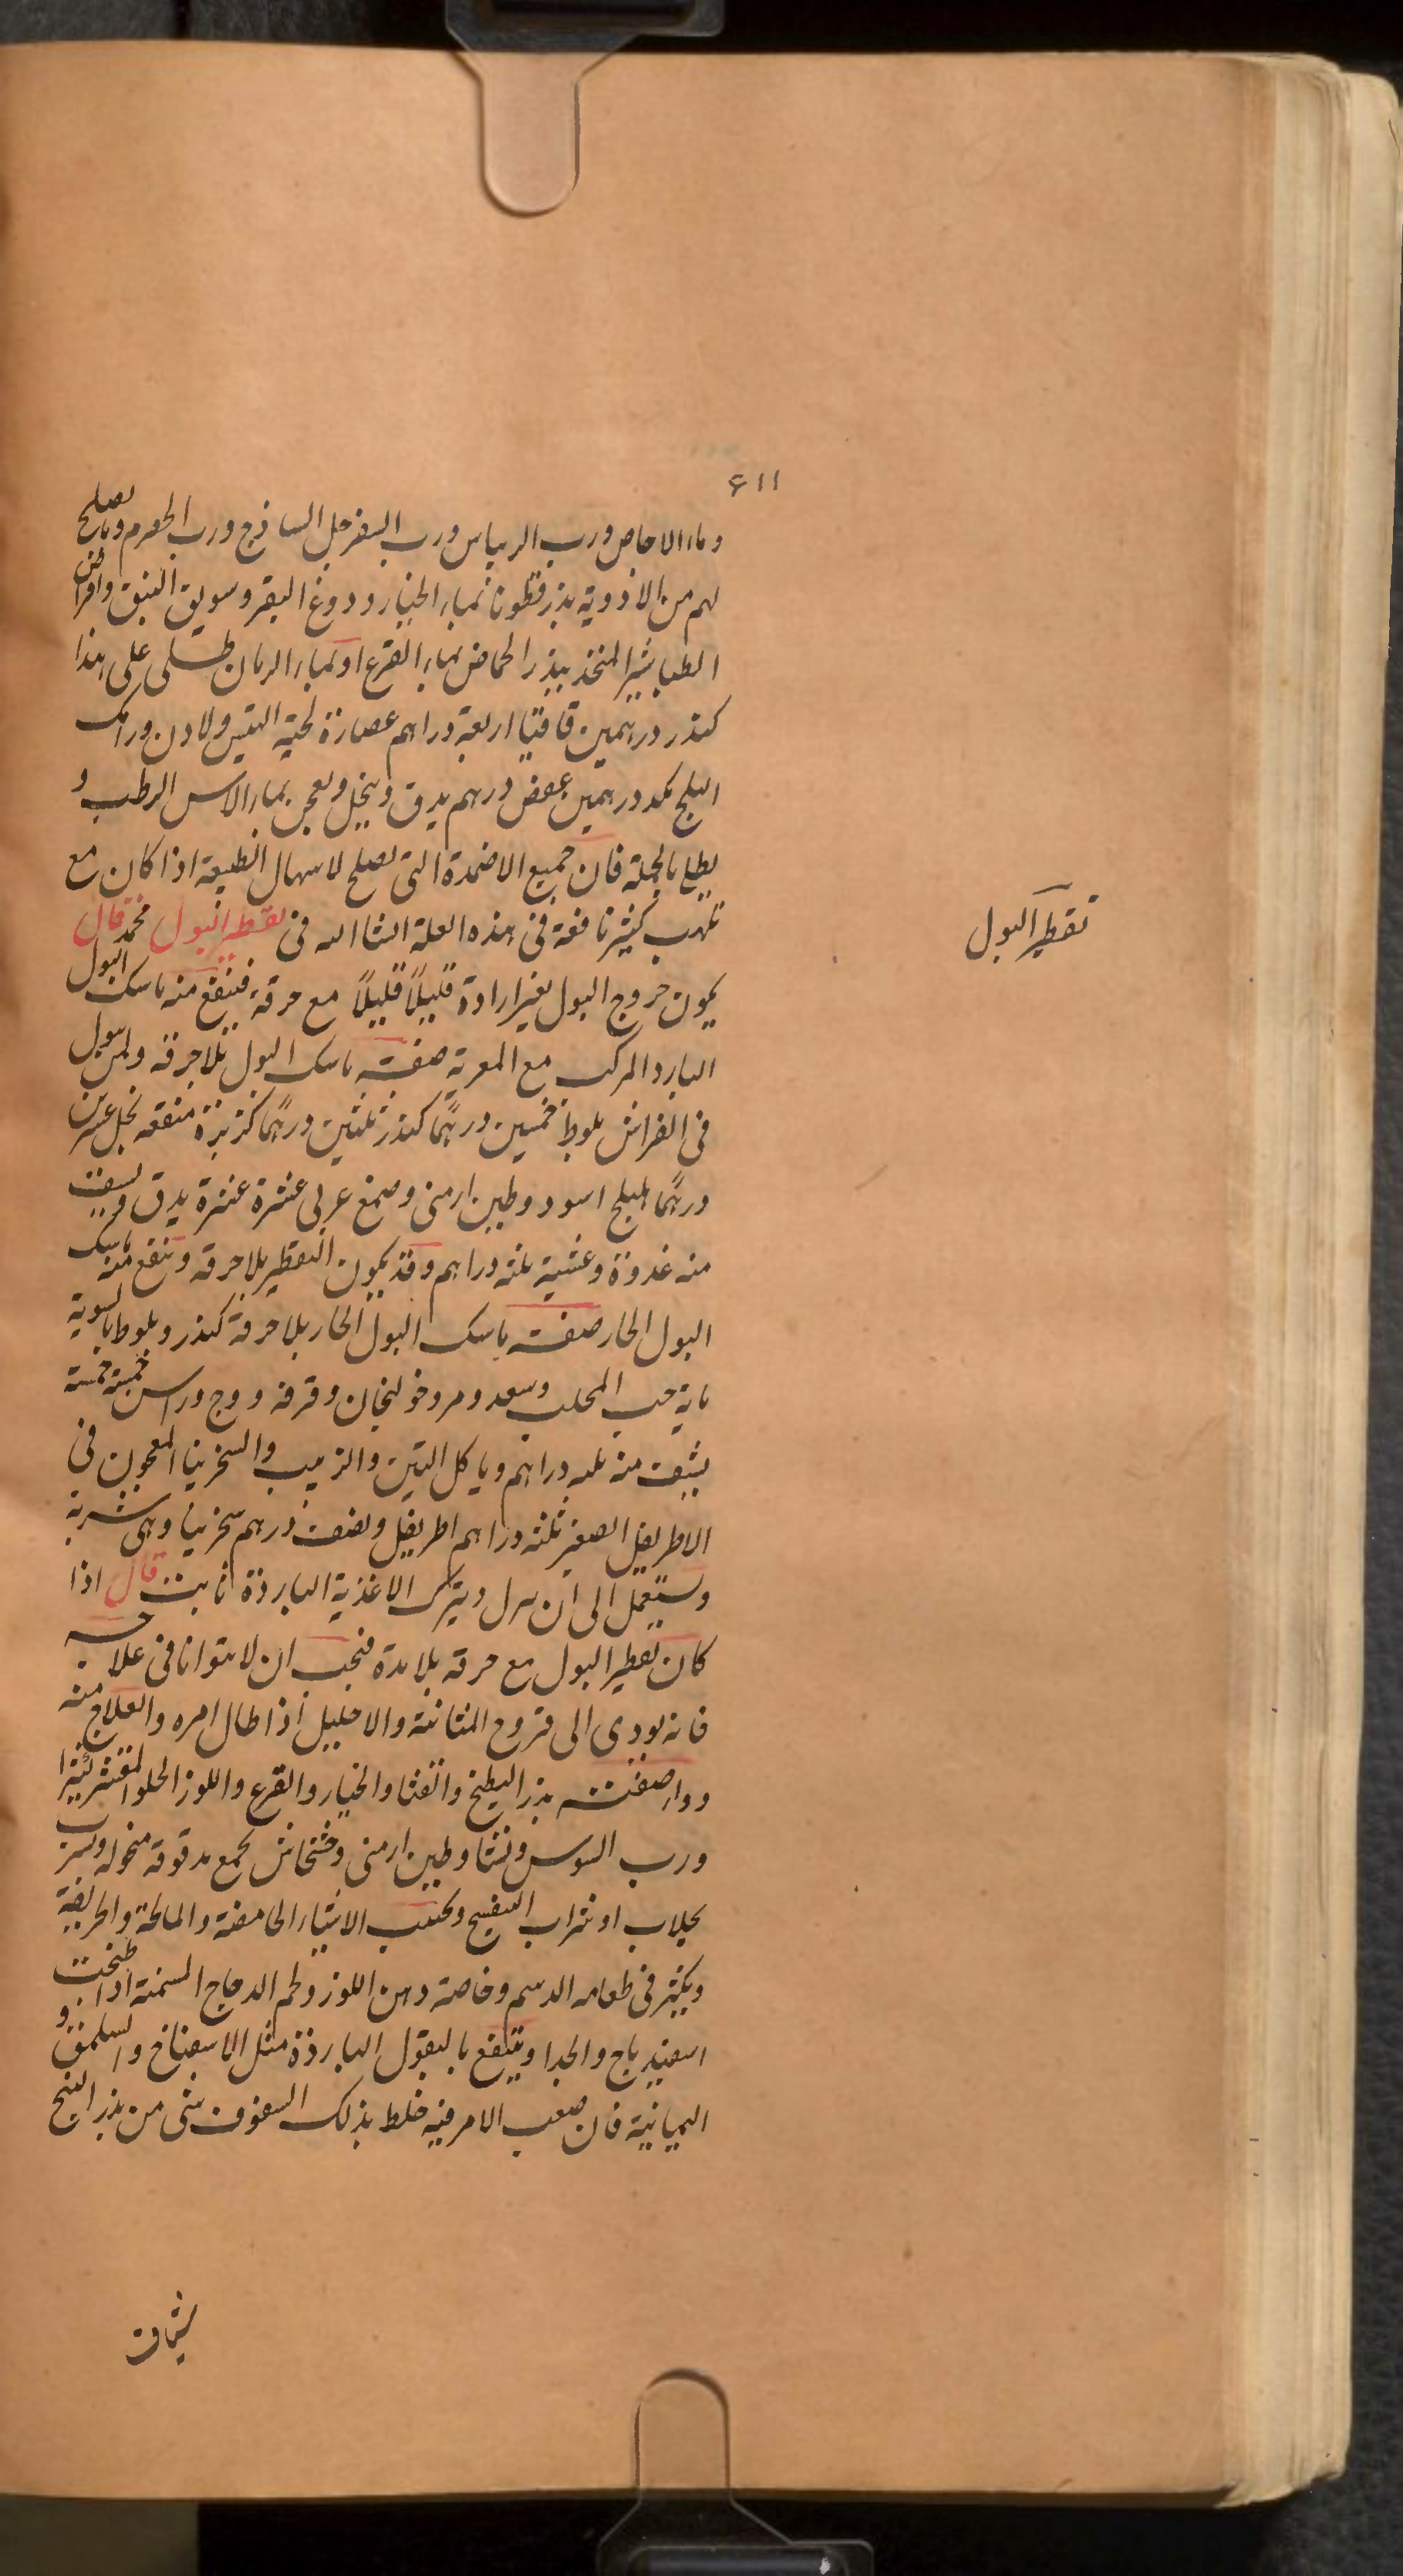 ٤١١
وماء الاجاص ورب الريباس ورب السفرجل الساذج ورب الحصرم ومما يصلح
لهم من الادوية بذر قطونا بماء الخيار ودوغ البقر وسويق النبق واقراص
الطباشير المتخذ ببذر الحماض بماء القرع او بماء الرمان طلى على هذا
كندر درهمين قاقيا اربعة دراهم عصارة لحية التيس ولادن ورامك
البلح بكد درهمين عفص درهم يدق وينخل ويعجن بماء الاس الرطب و
يطلى بالجملة فان جميع الاضمدة التى يصلح لاسهال الطبيعة اذا كان مع
تلهب كثير نافعة فى هذه العلة انشا الله فى تقطير البول محمد قال
يكون خروج البول بغير ارادة قليلاً قليلاً مع حرقة فينفع منه ماسك البول
البارد المركب مع المعرية صفت ماسك البول بلا حرقة ولمن يبول
فى الفراش بلوط خمسين درهمًا كندر ثلثين درهمًا كزبرة منقعه بخل عشرين
درهمًا هليلج اسود وطين ارمنى وصمغ عربى عشرة عشرة يدق ويسف
منه غدوة وعشية ثلثه دراهم وقد يكون التقطير بلا حرقه وينفع منه ماسك
البول الحار صفت ماسك البول الحار بلا حرقة كندر وبلوط بالسوية
مايه حب المحلب وسعد ومر وخولنجان وقرفه ووج وراسن خمسة خمسة
يشف منه ثلثه دراهم وياكل التين والزبيب والسخزنيا المعجون فى
الاطريفل الصغير ثلثه دراهم اطريفل ونصف درهم سخزنيا وهى شربة
ويستعمل الى ان يبرل ويترك الاغذية الباردة ثابت قال اذا
كان تقطير البول مع حرقه بلا مدة فيجب ان لا يتوانا فى علاجه
فانه يودى الى قروح المثانة والاحليل اذا طال امره والعلاج منه
دواء صفته بذر البطيخ والقثا والخيار والقرع واللوز الحلو المقشر كثيرا
ورب السوس ونشا وطين ارمنى وخشخاش يجمع مدقوقه منخوله ويشرب
بجلاب او شراب البنفسج ويجتنب الاشياء الحامضة والمالحة والحريفة
ويكثر فى طعامه الدسم وخاصة دهن اللوز ولحم الدجاج المسمنة اذا طبخت
اسفيدباج والجدا وينتفع بالبقول الباردة مثل الاسفناخ والسلق و
اليمانية فان صعب الامر فيه خلط بذلك السفوف شى من بذر البنج
تقطير البول